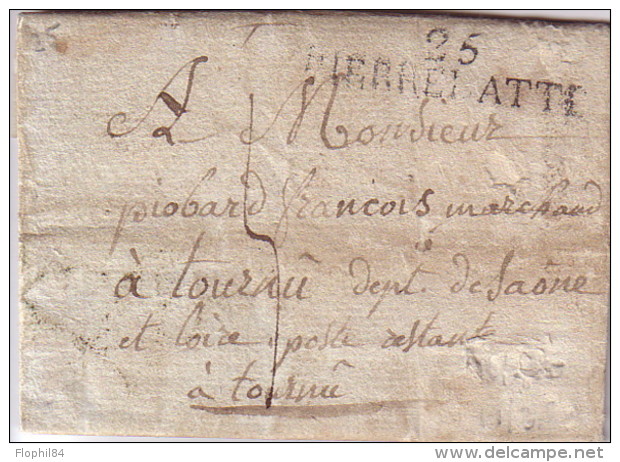 25
PIERRELATTE
A Monsieur
piobard francois marchand
à tournû dept. de Saône
et loire poste restante
à tournû
Flophil84
www.delcampe.net